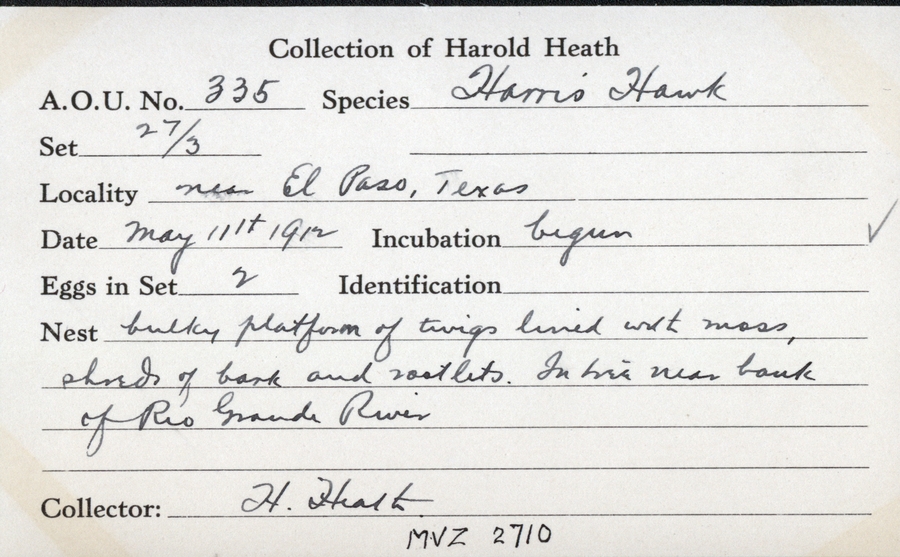 Collection of Harold Heath
A.O.U. No. 335 Species Harris Hawk
Set 27/3
Locality near El Paso, Texas
Date May 11th 1912 Incubation begun
Eggs in Set 2 Identification
Nest bulky platform of twigs lined with moss,
shreds of bark and rootlets. In tree near bank
of Rio Grande River
Collector: H. Heath
MVZ 2710